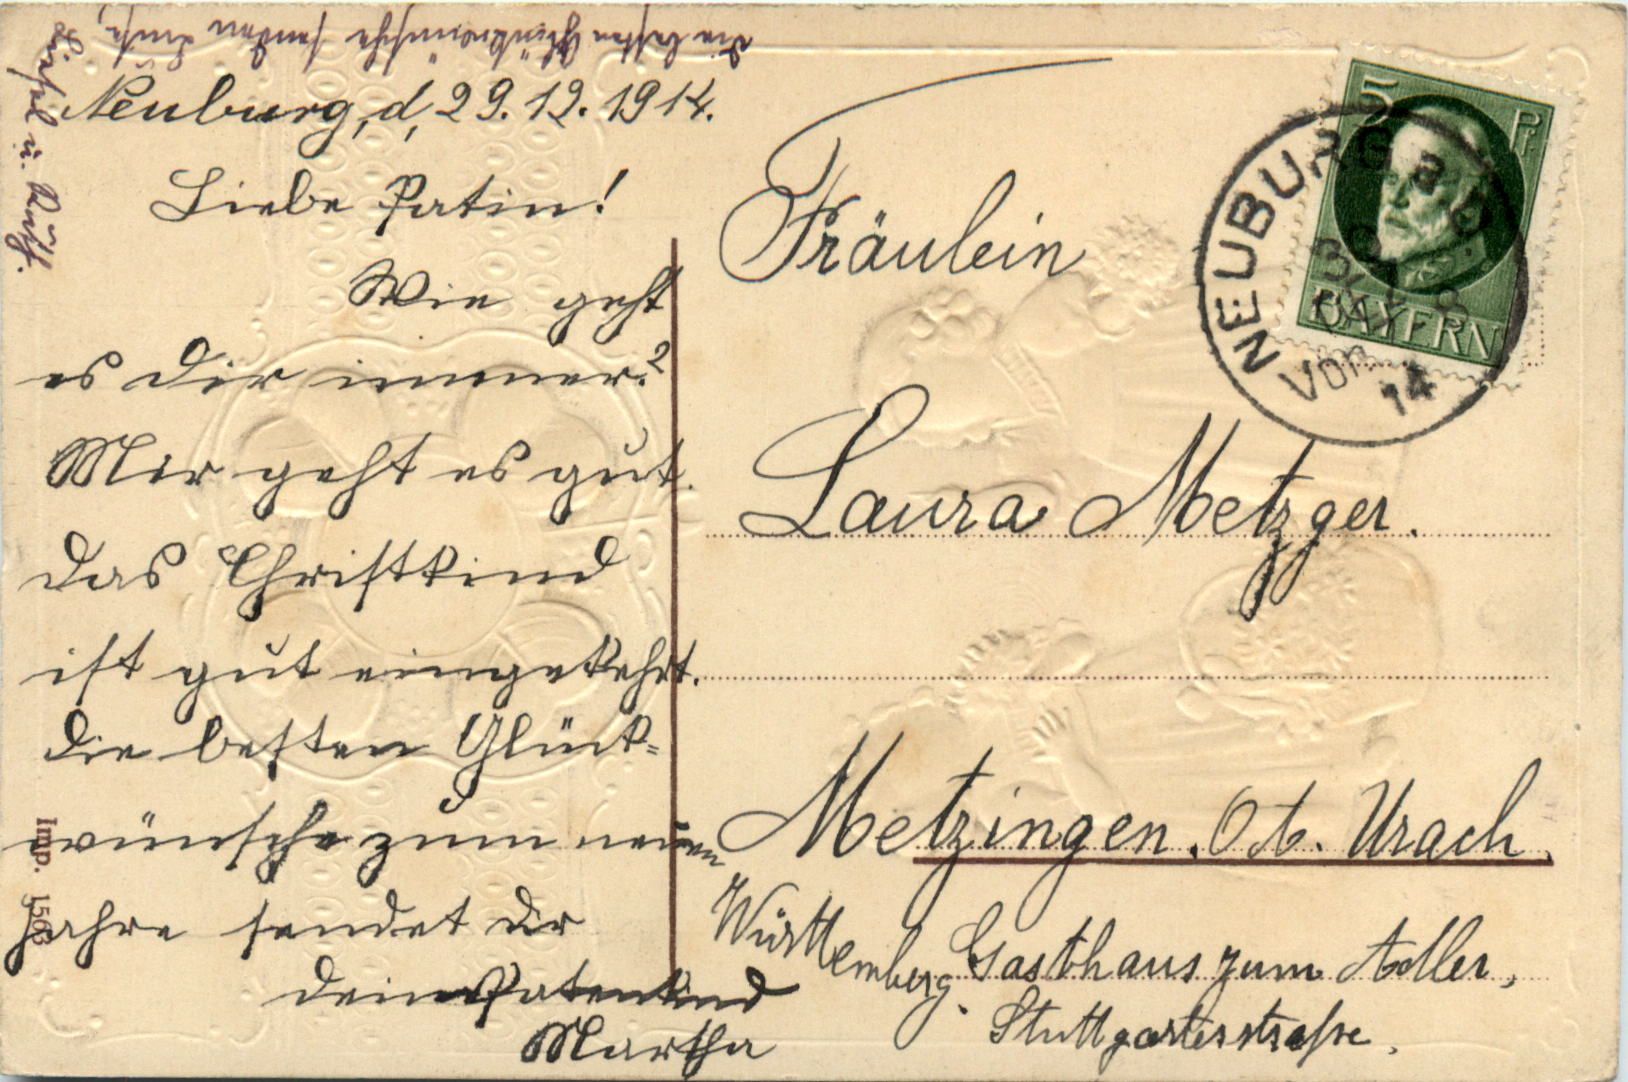 Die besten Glückwünsche senden
Neuburg, d, 29.12.1914.
Liebe Patin!
Wie geht
es dir immer?
Mir geht es gut.
Das Christkind
ist gut eingekehrt.
Die besten Glück=
wünsche zum neuen
Jahre sendet dir
dein Patenkind
Martha
Imp. 1563
Fräulein
Laura Metzger.
Metzingen. O.A. Urach.
Württemberg. Gasthaus zum Adler,
Stuttgarterstraße.
5 Pf.
BAYERN
NEUBURG a. D.
14